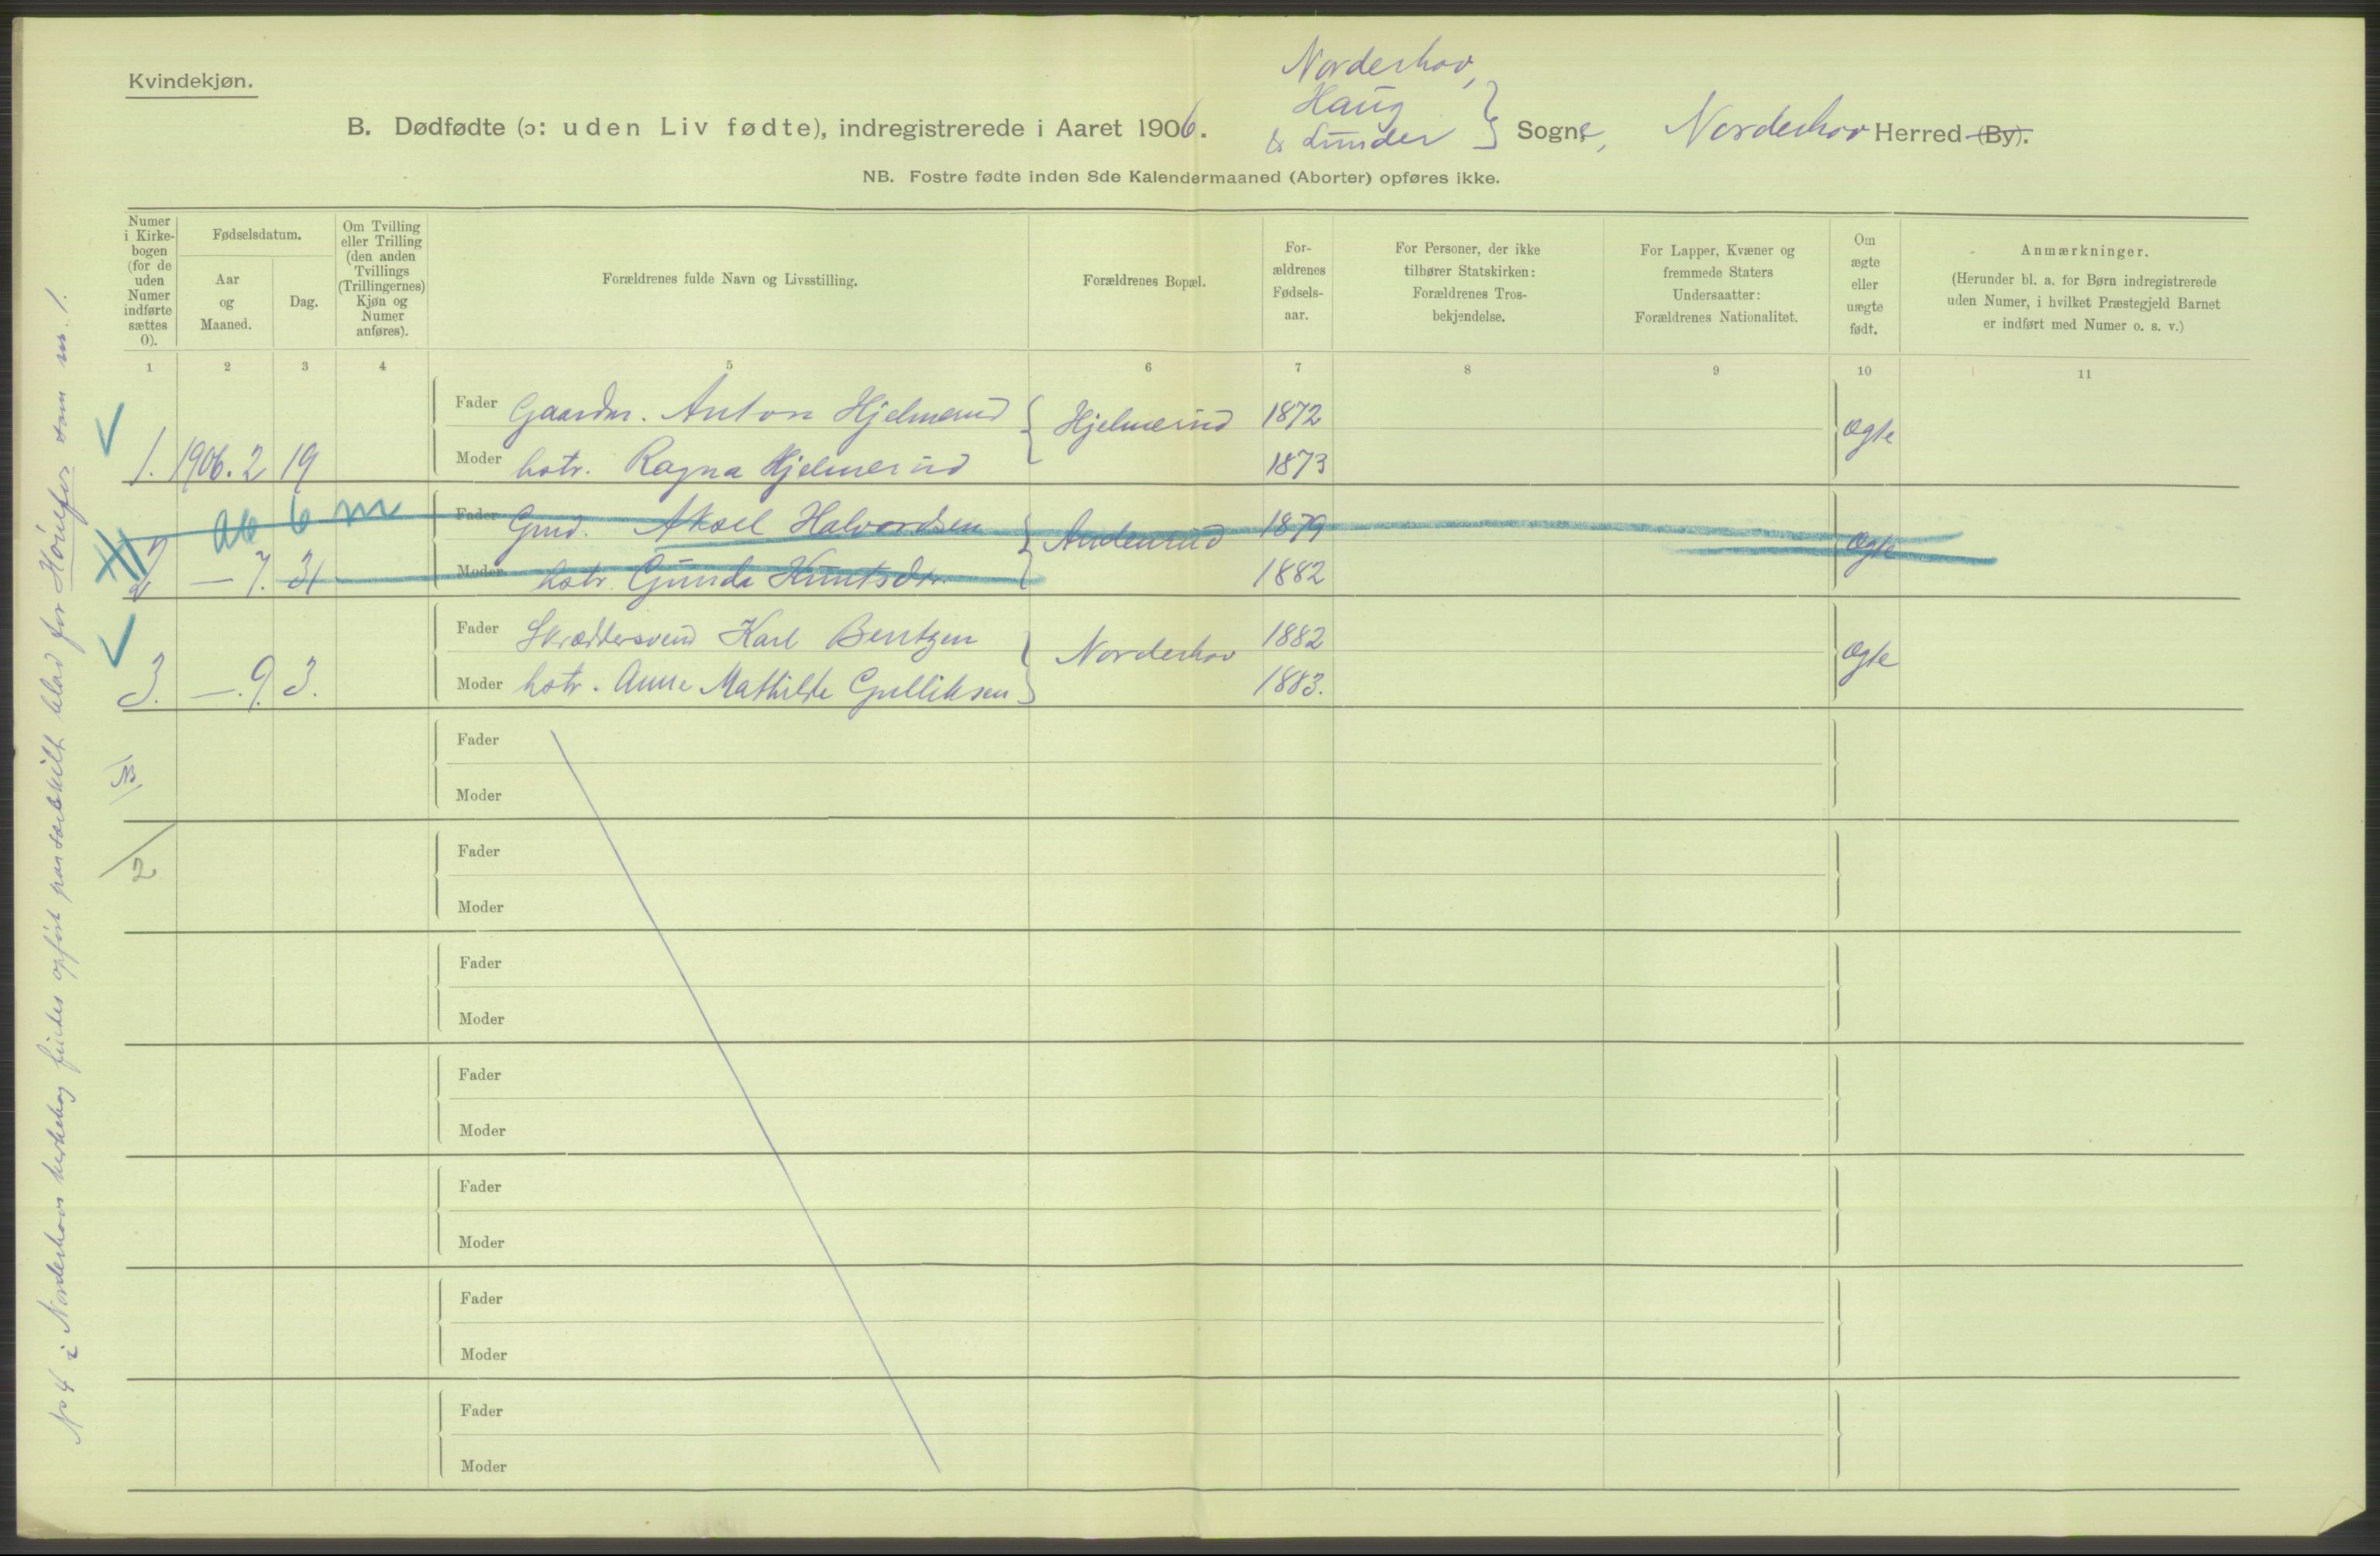 Kvindekjøn.
Norderhov,
Haug
& Lunder
B. Dødfødte (ɔ: uden Liv fødte), indregistrerede i Aaret 1906. Sogne, Norderhov Herred (By).
NB. Fostre fødte inden 8de Kalendermaaned (Aborter) opføres ikke.
Numer
i Kirke-
bogen
(for de
uden
Numer
indførte
sættes
0).
Fødselsdatum.
Aar
og
Maaned.
Dag.
Om Tvilling
eller Trilling
(den anden
Tvillings
(Trillingernes)
Kjøn og
Numer
anføres).
Forældrenes fulde Navn og Livsstilling.
Forældrenes Bopæl.
For-
ældrenes
Fødsels-
aar.
For Personer, der ikke
tilhører Statskirken:
Forældrenes Tros-
bekjendelse.
For Lapper, Kvæner og
fremmede Staters
Undersaatter:
Forældrenes Nationalitet.
Om
ægte
eller
uægte
født.
Anmærkninger.
(Herunder bl. a. for Børn indregistrerede
uden Numer, i hvilket Præstegjeld Barnet
er indført med Numer o. s. v.)
1 2 3 4 5 6 7 8 9 10 11
Fader Gaardm. Anton Hjelmerud Hjelmerud 1872 Ægte
1. 1906. 2 19 Moder hstr. Ragna Hjelmerud 1873
ab 6 m
Fader Gmd. Aksel Halvordsen 1879 Ægte
2 — 7. 31 Moder hstr. Gunda Knutsdtr. 1882
Fader Skræddersvend Karl Bentzen Norderhov 1882 Ægte
3. —. 9. 3. Moder hstr. Anne Mathilde Gulliksen 1883.
Fader
NB
Moder
Fader
2
Moder
Fader
Moder
Fader
Moder
Fader
Moder
Fader
Moder
Fader
Moder
No 4 i Norderhovs kirkebog findes opført paa særskilt blad for Hønefos som nr. 1.